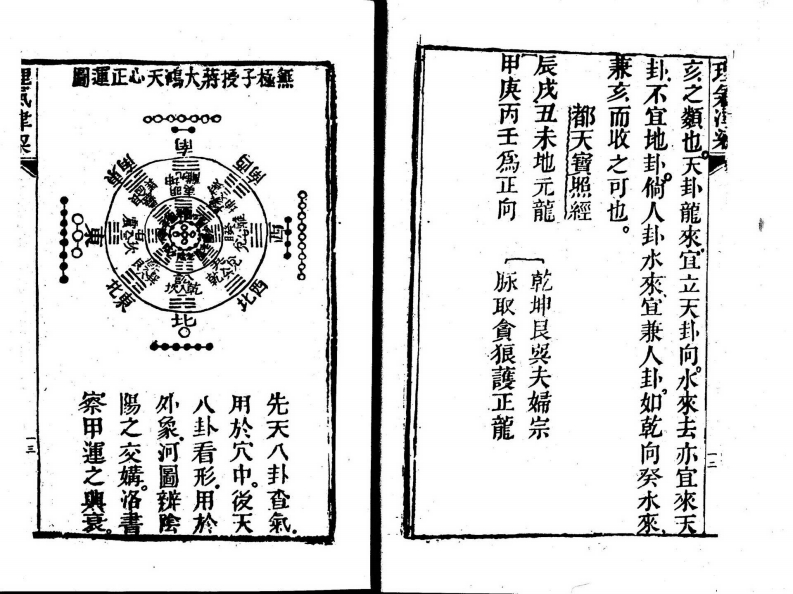 理氣津梁
亥之類也。天卦龍來。宜立天卦向。水來去亦宜來天
卦。不宜地卦。倘人卦水來。宜兼人卦。如乾向癸水來。
兼亥而收之可也。
都天寶照經
辰戌丑未地元龍
乾坤艮巽夫婦宗
甲庚丙壬為正向
脉取貪狼護正龍
一二
無極子授蔣大鴻天心正運圖
南
東南
西南
東
西
東北
西北
北
先天八卦查氣。
用於穴中。後天
八卦看形。用於
外象。河圖辨陰
陽之交媾。洛書
察甲運之興衰。
理氣津梁
一三